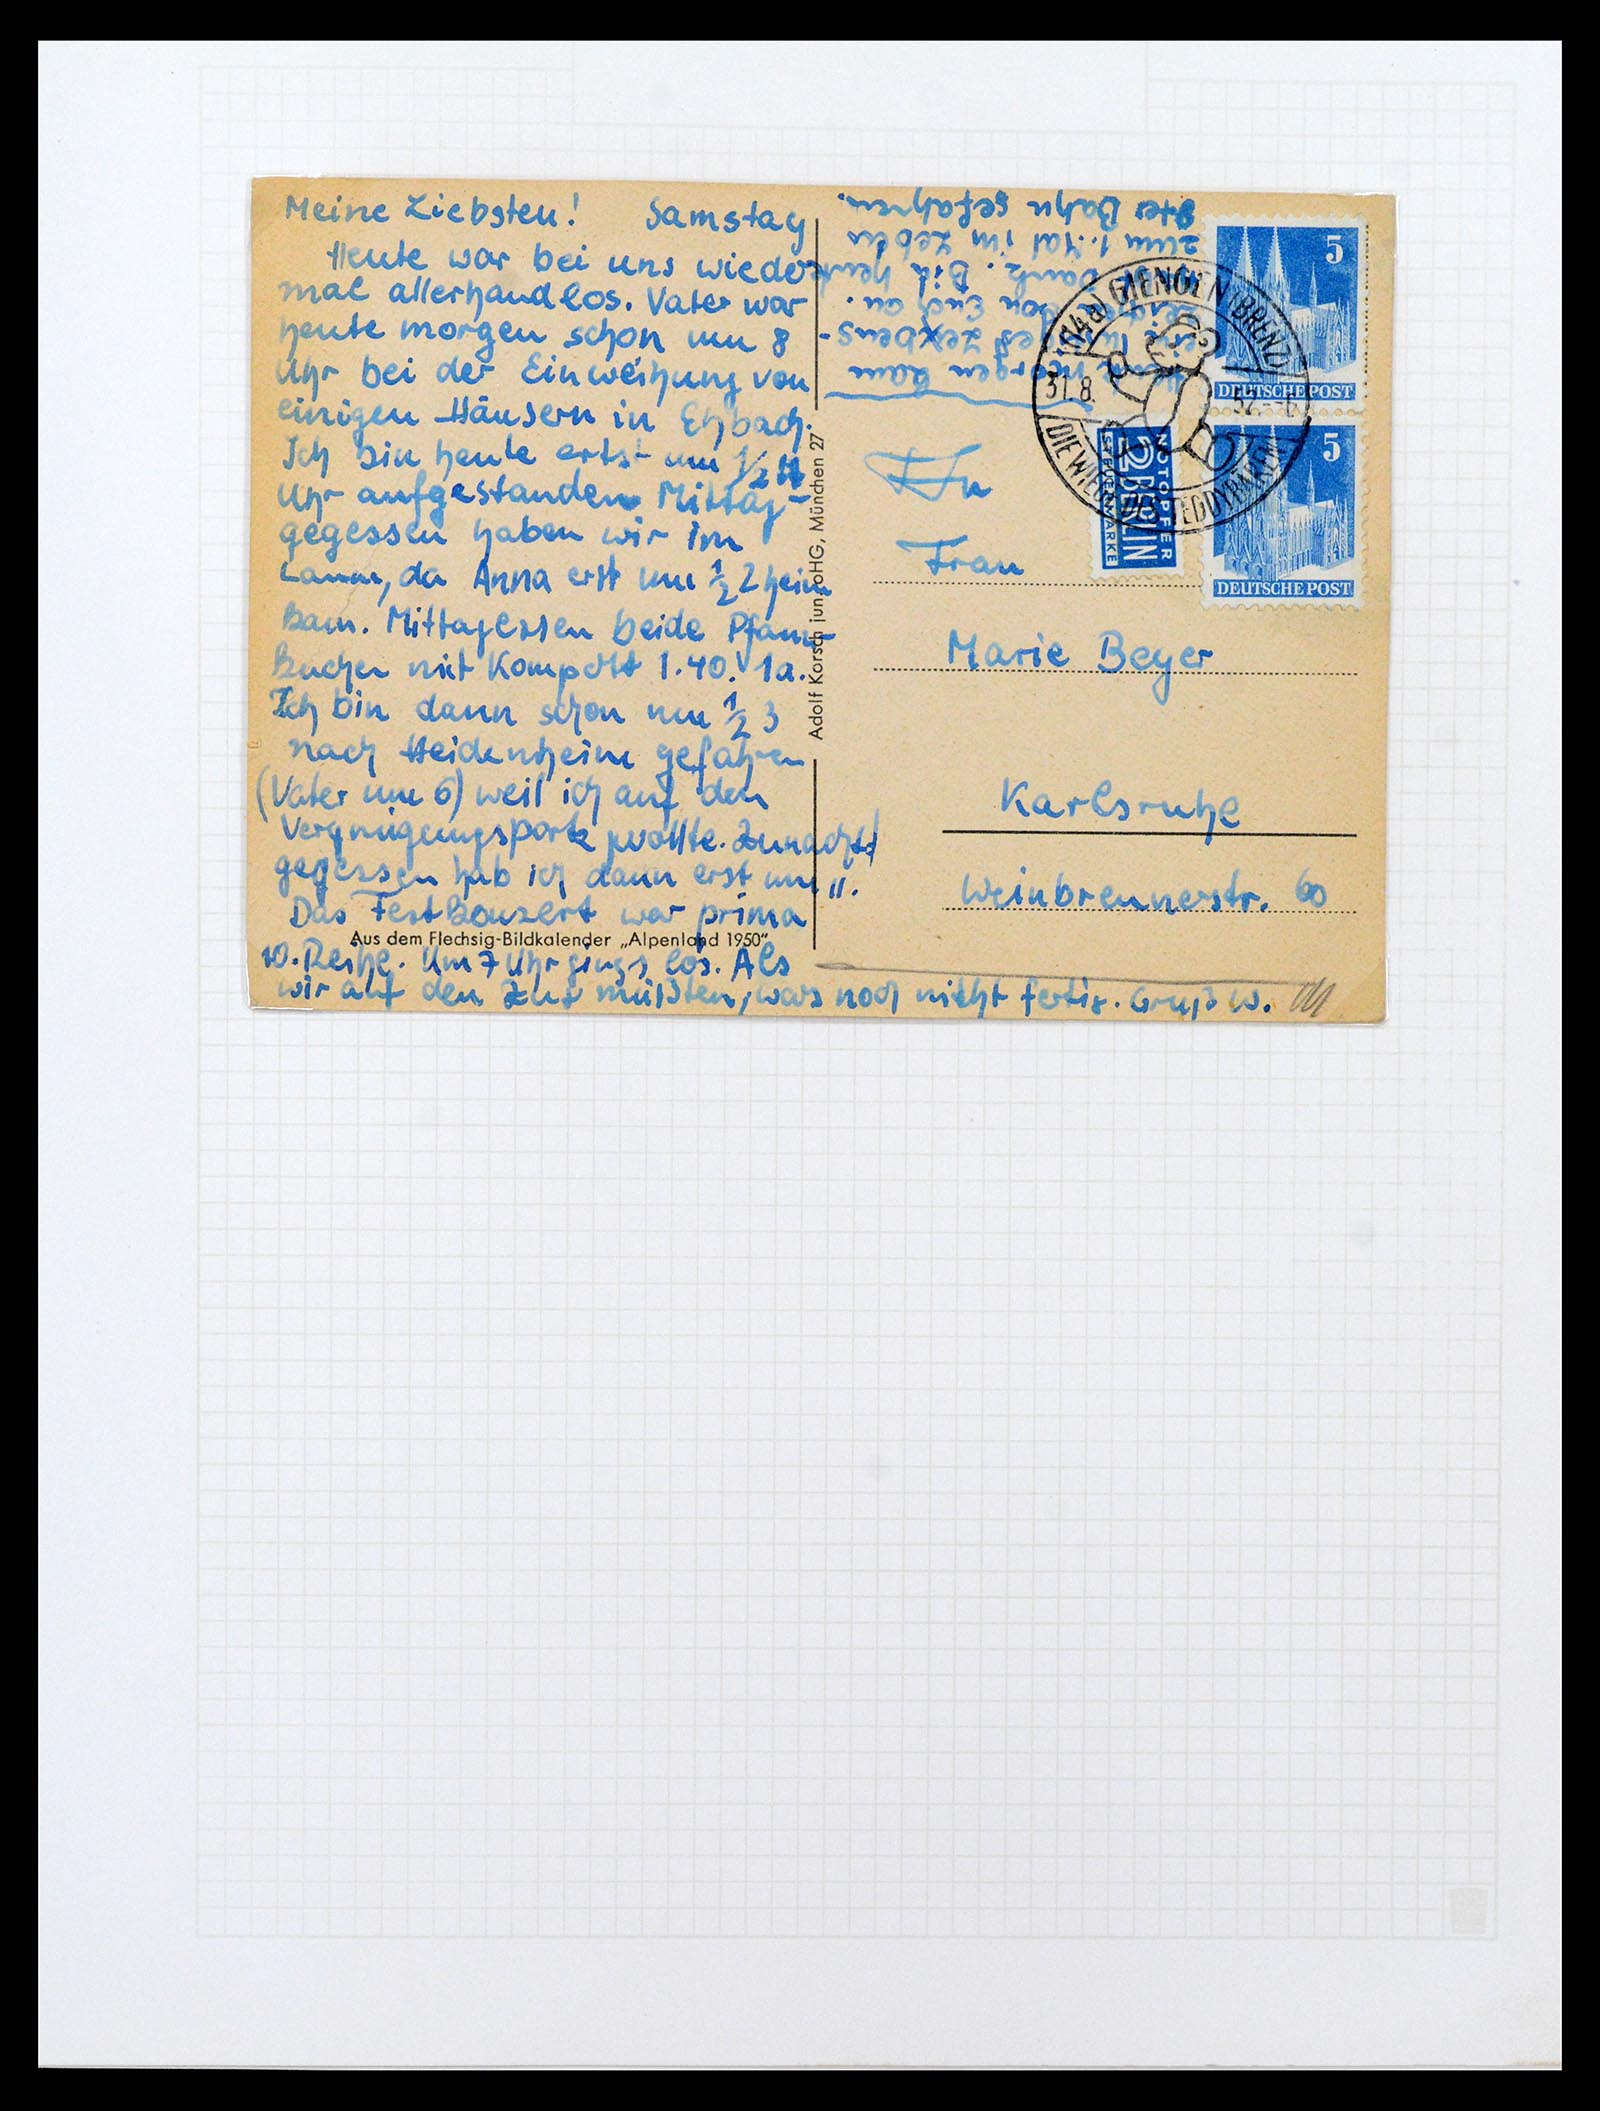 Meine Liebsten! Samstag
Heute war bei uns wieder
mal allerhand los. Vater war
heute morgen schon um 8
Uhr bei der Einweihung von
einigen Häusern in
Ich bin heute erst um 1/2 11
Uhr aufgestanden Mittag-
gegessen haben wir im
Lamm, da Anna erst um 1/2 2 heim
kam. Mittagessen beide Pfann-
kuchen mit Kompott 1.40. 1a.
Ich bin dann schon um 1/2 3
nach Heidenheim gefahren
(Vater um 6) weil ich auf den
Vergnügungspark wollte. Zunächst
gegessen hab ich dann erst um 11.
Das Festkonzert war prima
Aus dem Flechsig-Bildkalender „Alpenland 1950"
10. Reihe. Um 7 Uhr gings los. Als
wir auf den Zug mußten, wars noch nicht fertig. Gruß W.
Adolf Korsch jun. oHG, München 27
Heute morgen kam
ein des Lebens-
von Euch an.
Dank. Bin heute
zum 1. Mal im Leben
2ter Bahn gefahren.
(14a) GIENGEN (BRENZ)
31.8. 52
DIE WIEGE DES TEDDYBÄREN
5
DEUTSCHE POST
5
DEUTSCHE POST
NOTOPFER
2 BERLIN
STEUERMARKE
An
Frau
Marie Beyer
Karlsruhe
Weinbrennerstr. 60